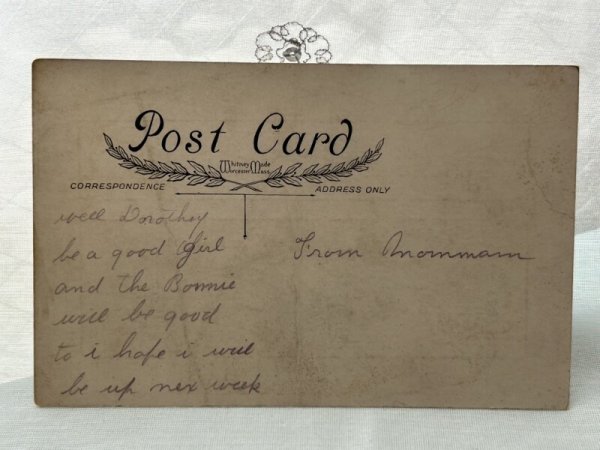 Post Card
Whitney Made
Worcester Mass
CORRESPONDENCE
ADDRESS ONLY
well Dorothey
be a good Girl
and the Bonnie
will be good
to i hope i will
be up nex week
From Mommam